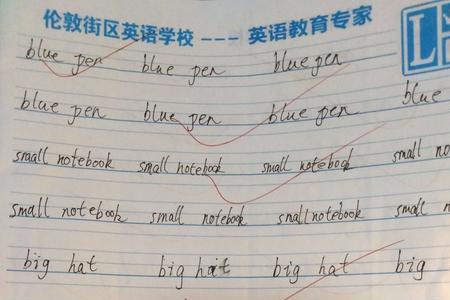 伦敦街区英语学校 --- 英语教育专家
blue pen blue pen blue pen
blue pen blue pen blue pen blue
small notebook small notebook small notebook small no
small notebook small notebook snall notebook small n
big hat big hat big hat big